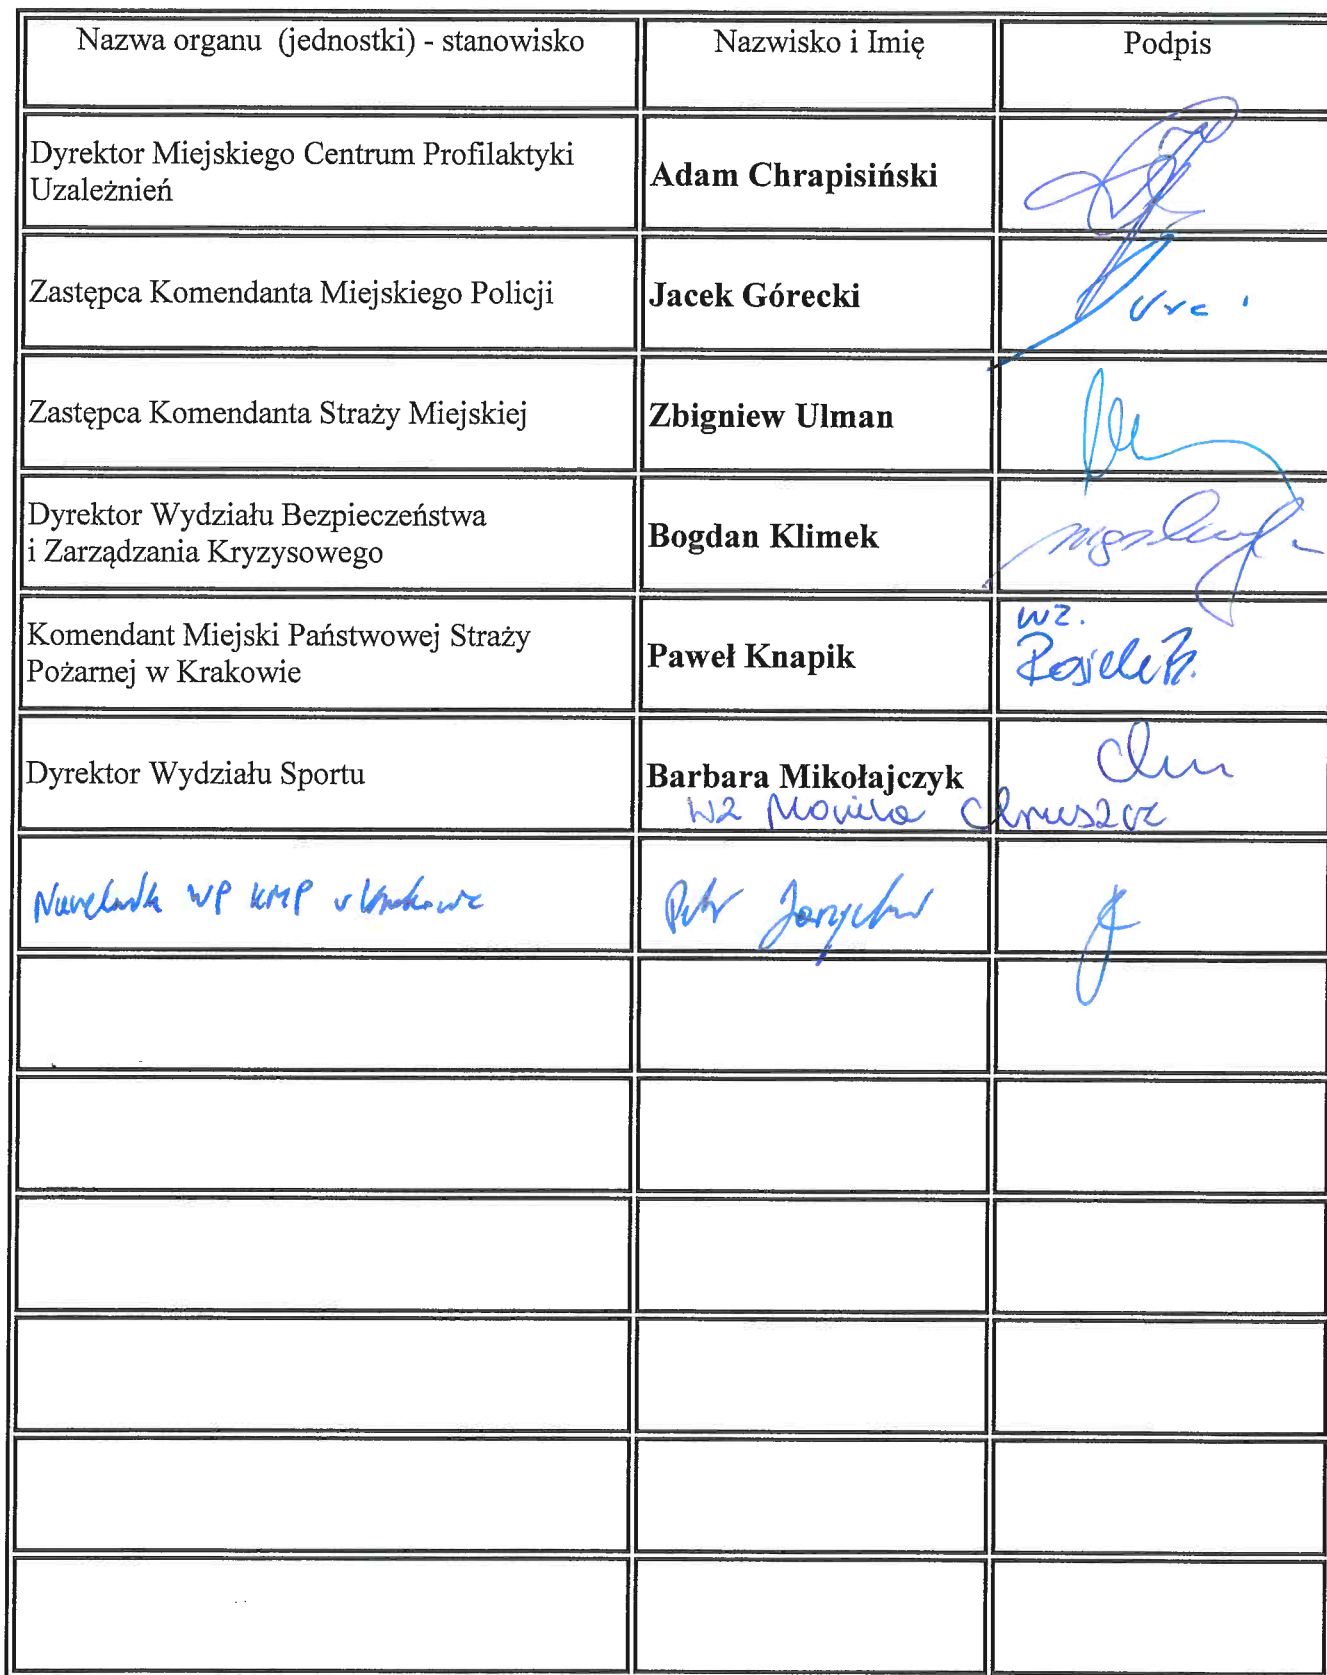 Nazwa organu (jednostki) - stanowisko
Nazwisko i Imię
Podpis
Dyrektor Miejskiego Centrum Profilaktyki
Uzależnień
Adam Chrapisiński
Zastępca Komendanta Miejskiego Policji
Jacek Górecki
Zastępca Komendanta Straży Miejskiej
Zbigniew Ulman
Dyrektor Wydziału Bezpieczeństwa
i Zarządzania Kryzysowego
Bogdan Klimek
Komendant Miejski Państwowej Straży
Pożarnej w Krakowie
Paweł Knapik
wz.
Dyrektor Wydziału Sportu
Barbara Mikołajczyk
wz Monika
WP KMP w Krakowie
Piotr